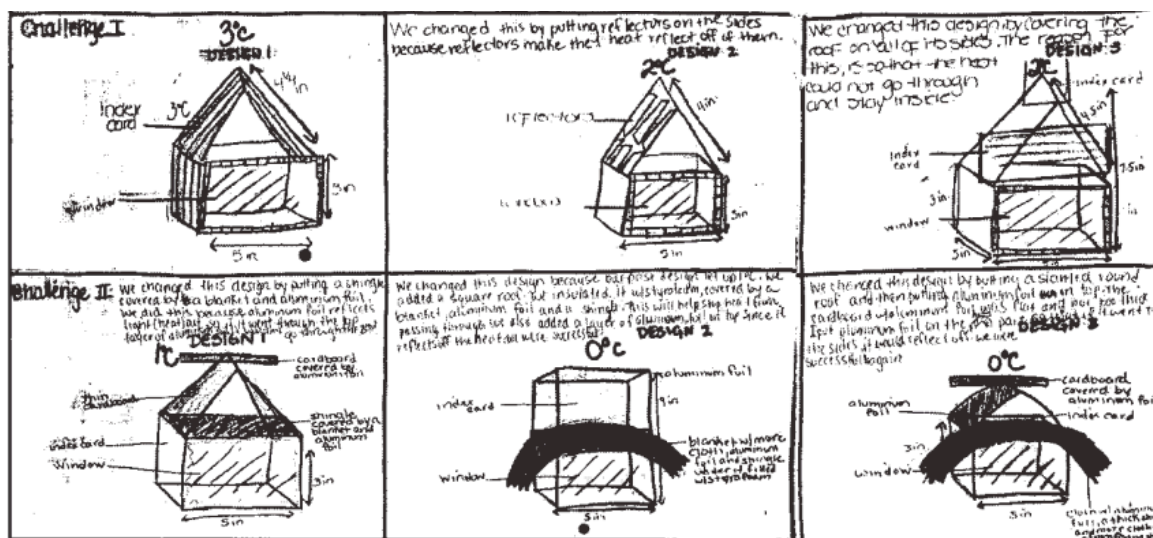 Challenge I
3°C
DESIGN 1
4 1/4 in
Index card
3°C
window
3 in
5 in
We changed this by putting reflectors on the sides
because reflectors make the heat reflect off of them.
DESIGN 2
2°C
reflectors
4in
window
3in
5 in
We changed this design by covering the
roof on all of its sides. The reason for
this, is so that the heat
could not go through
and stay inside.
DESIGN 3
2°C
index card
4.5in
Index card
7.5in
3in
window
5in
Challenge II
We changed this design by putting a shingle
covered by a blanket and aluminum foil.
We did this because aluminum foil reflects
light (heat) so if it went through the top
layer of aluminum go through the 2nd
DESIGN 1
1°C
cardboard
covered by
aluminum foil
thin
cardboard
shingle
covered by a
blanket and
aluminum
foil
index card
Window
3in
5in
We changed this design because our past design let up 1°C. We
added a square roof. We insulated it w/styrofoam, covered by a
blanket, aluminum foil and a shingle. This will help stop heat from
passing through. We also added a layer of aluminum foil at top since it
reflects off the heat. We were successful.
DESIGN 2
0°C
aluminum foil
index card
4in
blanket w/more
cloth, aluminum
foil and shingle
under it filled
w/styrofoam
Window
3in
5in
We changed this design by putting a slanted round
roof and then putting aluminum foil on top. The
cardboard w/aluminum foil was flat and not too thick.
I put aluminum foil on the part so that if it went to
the sides, it would reflect off. We were
successful again
DESIGN 3
0°C
cardboard
covered by
aluminum foil
aluminum
foil
index card
3in
window
5in
cloth w/ aluminum
foil, a thick
and more cloth